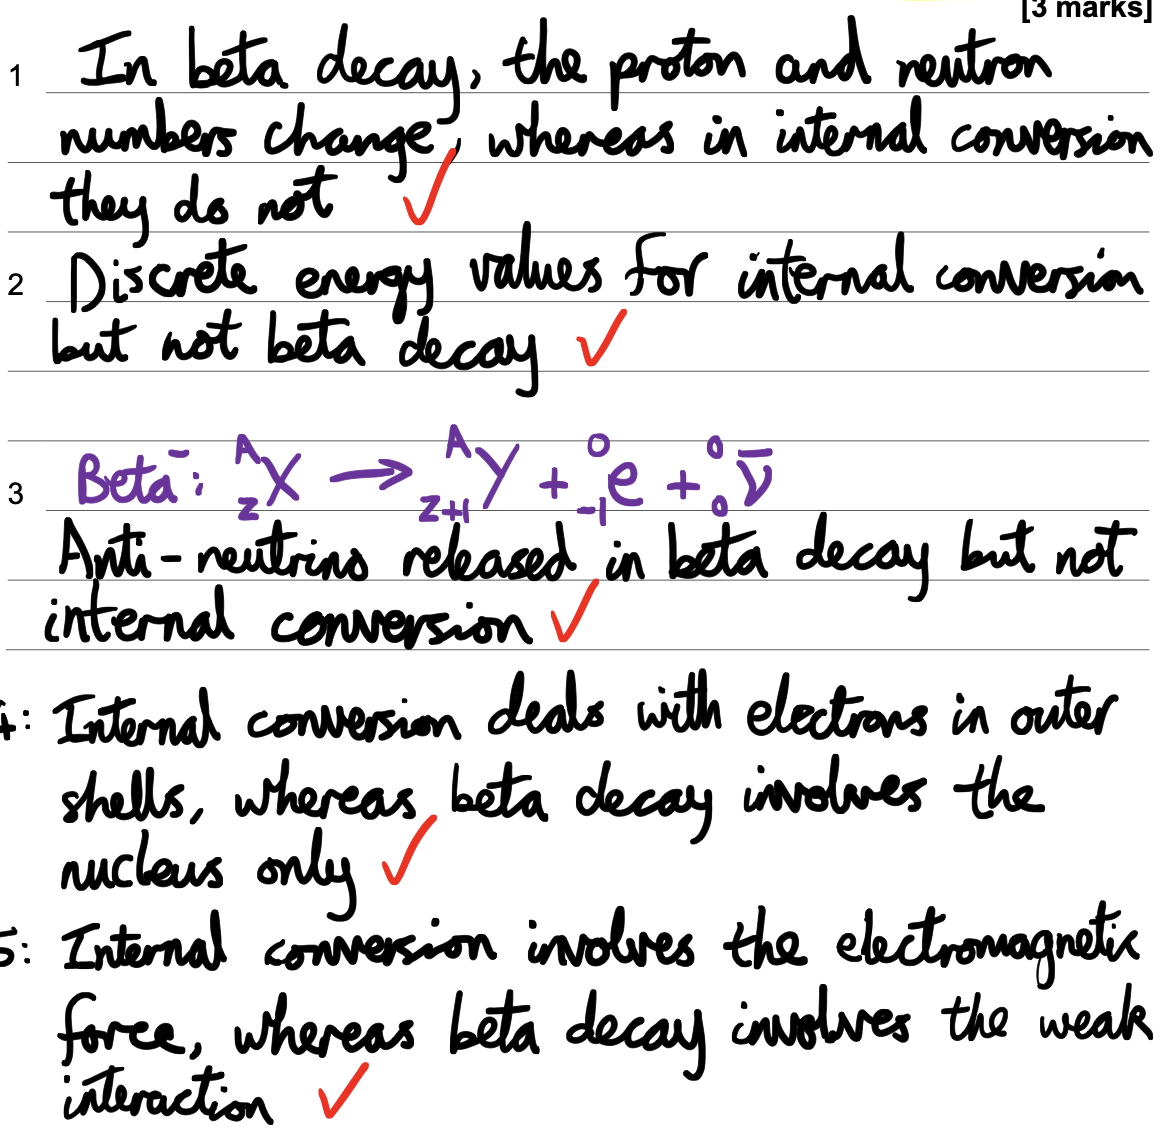 [3 marks]
1 In beta decay, the proton and neutron
numbers change, whereas in internal conversion
they do not ✓
2 Discrete energy values for internal conversion
but not beta decay ✓
3 Beta⁻: ᴬ_Z X → ᴬ_Z+1 Y + ⁰_-1 e + ⁰_0 ν̅
Anti-neutrino released in beta decay but not
internal conversion ✓
4: Internal conversion deals with electrons in outer
shells, whereas beta decay involves the
nucleus only ✓
5: Internal conversion involves the electromagnetic
force, whereas beta decay involves the weak
interaction ✓